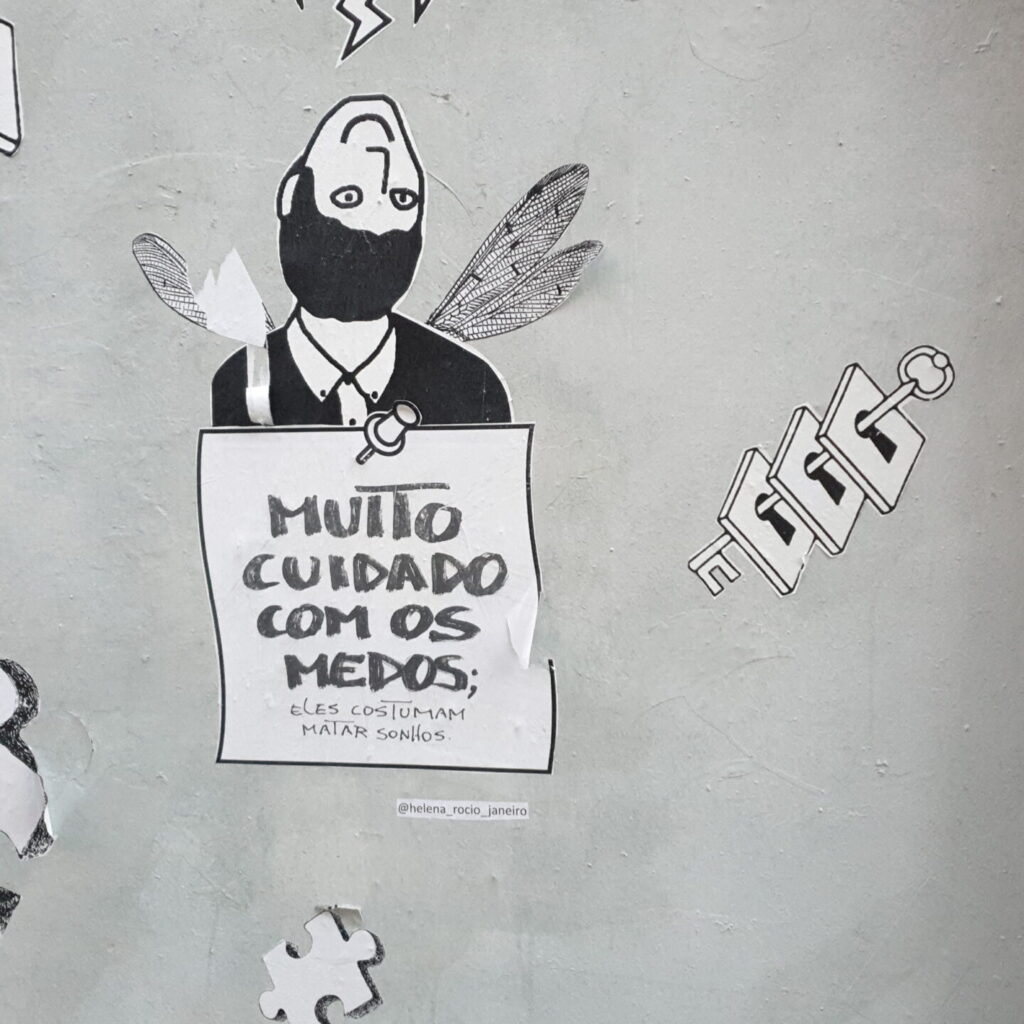 MUITO
CUIDADO
COM OS
MEDOS;
ELES COSTUMAM
MATAR SONHOS.
@helena_rocio_janeiro